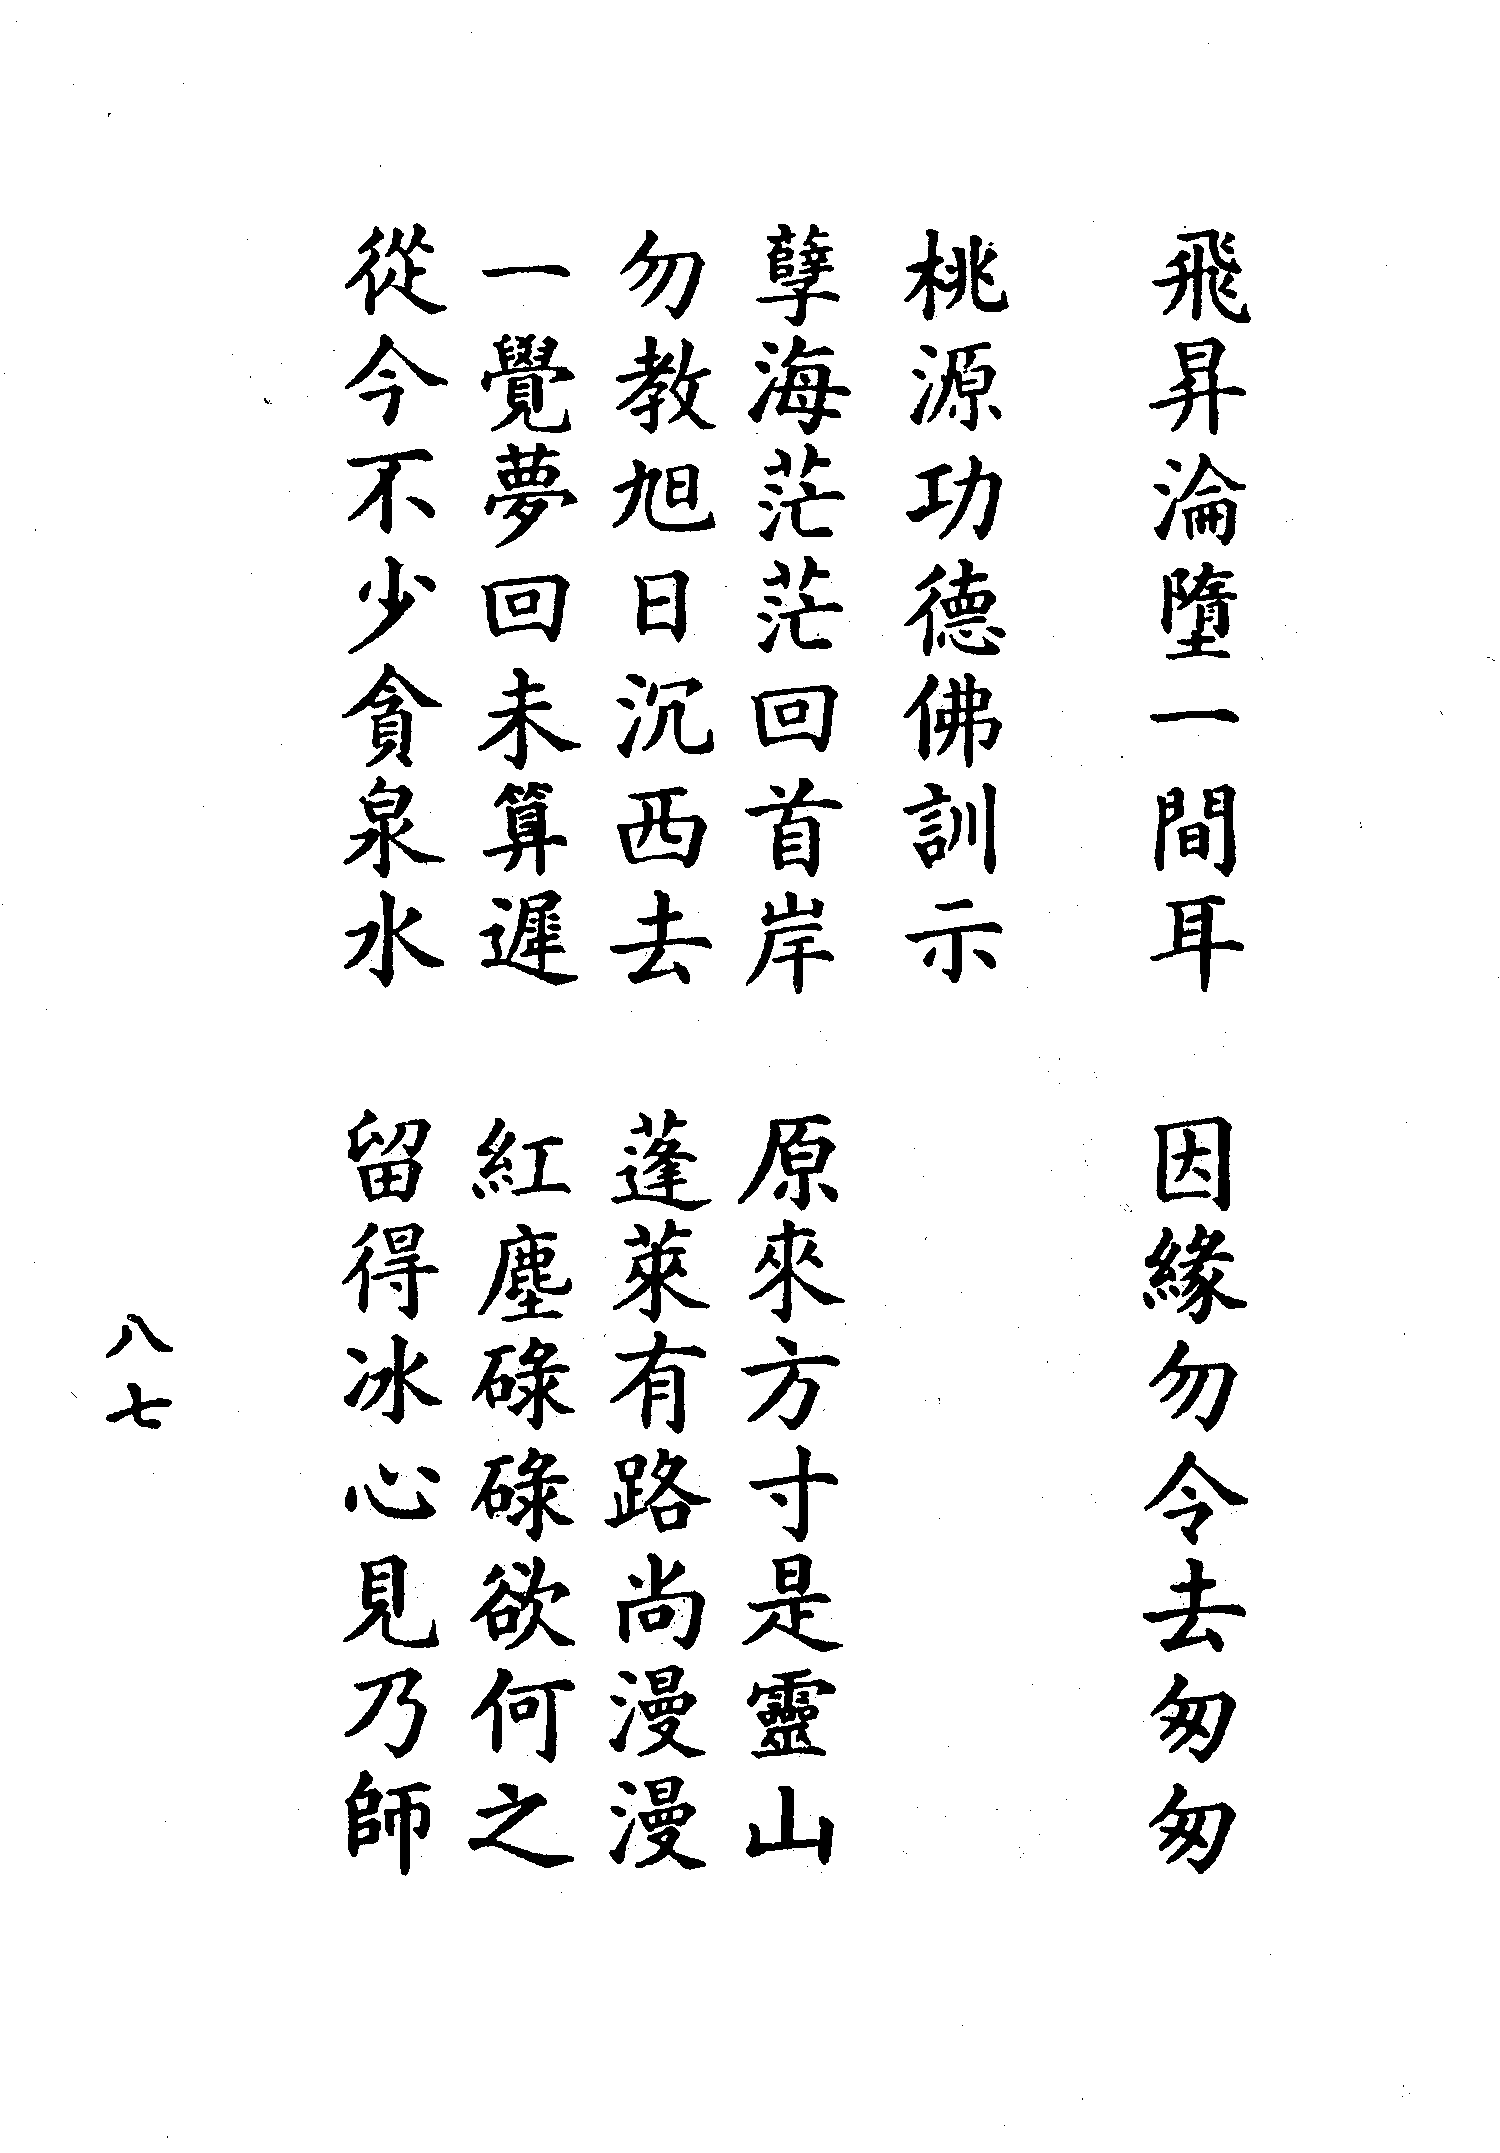 飛昇淪墮一間耳　因緣勿令去匆匆
桃源功德佛訓示
孽海茫茫回首岸　原來方寸是靈山
勿教旭日沉西去　蓬萊有路尚漫漫
一覺夢回未算遲　紅塵碌碌欲何之
從今不少貪泉水　留得冰心見乃師
八七